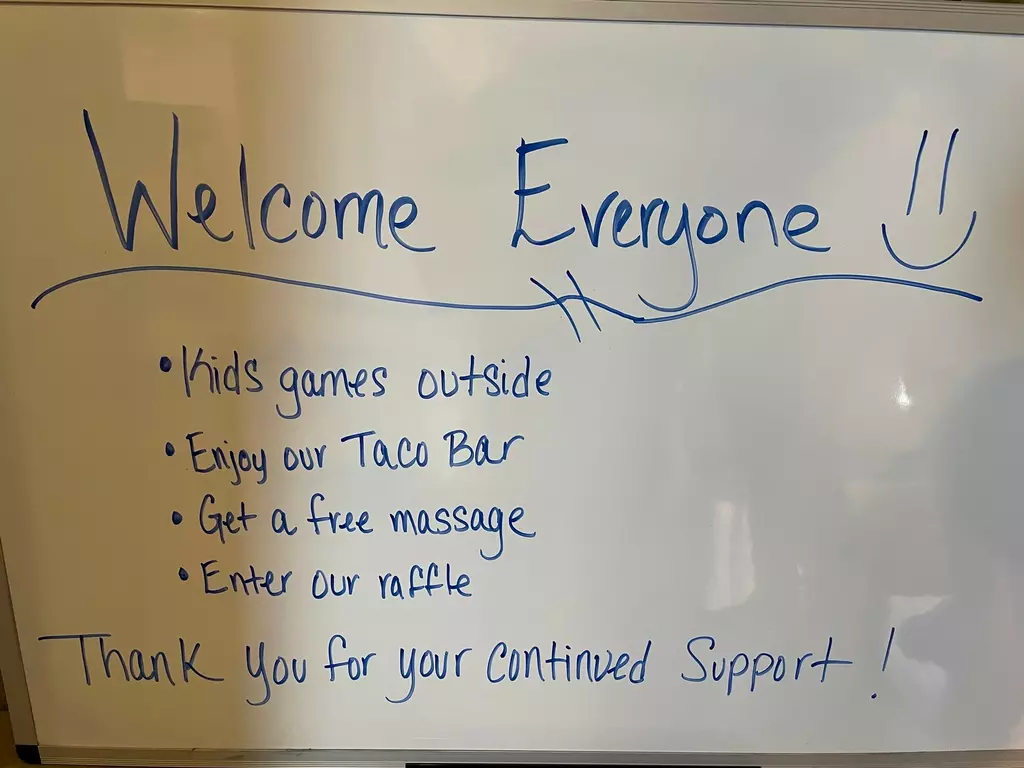 Welcome Everyone
• Kids games outside
• Enjoy our Taco Bar
• Get a free massage
• Enter our raffle
Thank you for your continued Support!